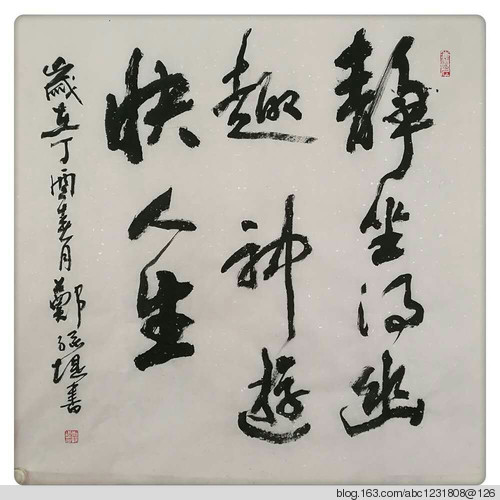 静坐得幽
趣神游
快人生
岁在丁酉春月郑
书
blog.163.com/abc1231808@126